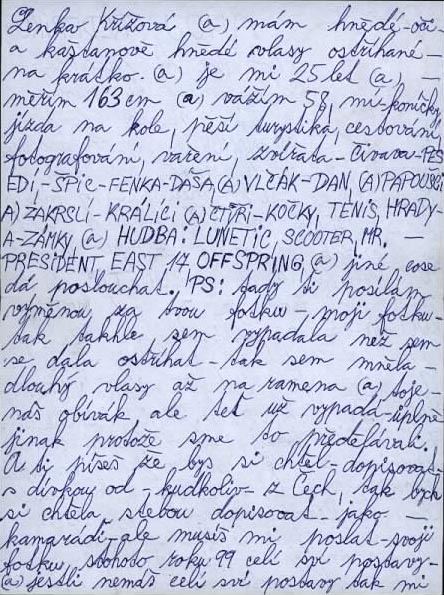 Lenka Křížová (a) mám hnědé-oči-
a kaštanově hnědé vlasy ostříhané-
na krátko. (a) je mi 25 let (a), -
měřím 163 cm (a) vážím 58, mí-koníčky
jízda na kole, pěší turystika, cestování
fotografování, vaření, zvířata-čivava-PES
EDÍ,-ŠPIC-FENKA-DAŠA,(A)VLČÁK-DAN,(A)PAPOUŠCI
A) ZAKRSLÍ-KRÁLÍCI (A) ČTYŘI-KOČKY, TENIS, HRADY
A-ZÁMKY, (a) HUDBA: LUNETIC, SCOOTER, MR. -
PRESIDENT, EAST 17, OFFSPRING, (a) jiné cose
dá poslouchat. PS: tady ti posílám
výměnou za tvou fotku-moji fotku-
tak takhle sem vypadala než sem
se dala ostříhat-tak sem měla-
dlouhý vlasy až na ramena (a) toje-
náš obívák ale teť už vypadá-úplně
jinak protože sme to předělávali.
A ti píšeš že bys si chtěl-dopisovat-
s dívkou od-kudkoliv-z Čech, tak bych
si chtěla stebou dopisovat-jako-
kamarádi-ale musíš mi poslat-svoji
fotku stohoto roku 99 celí sví postavy-
(a) jestli nemáš celí sví postavy tak mi